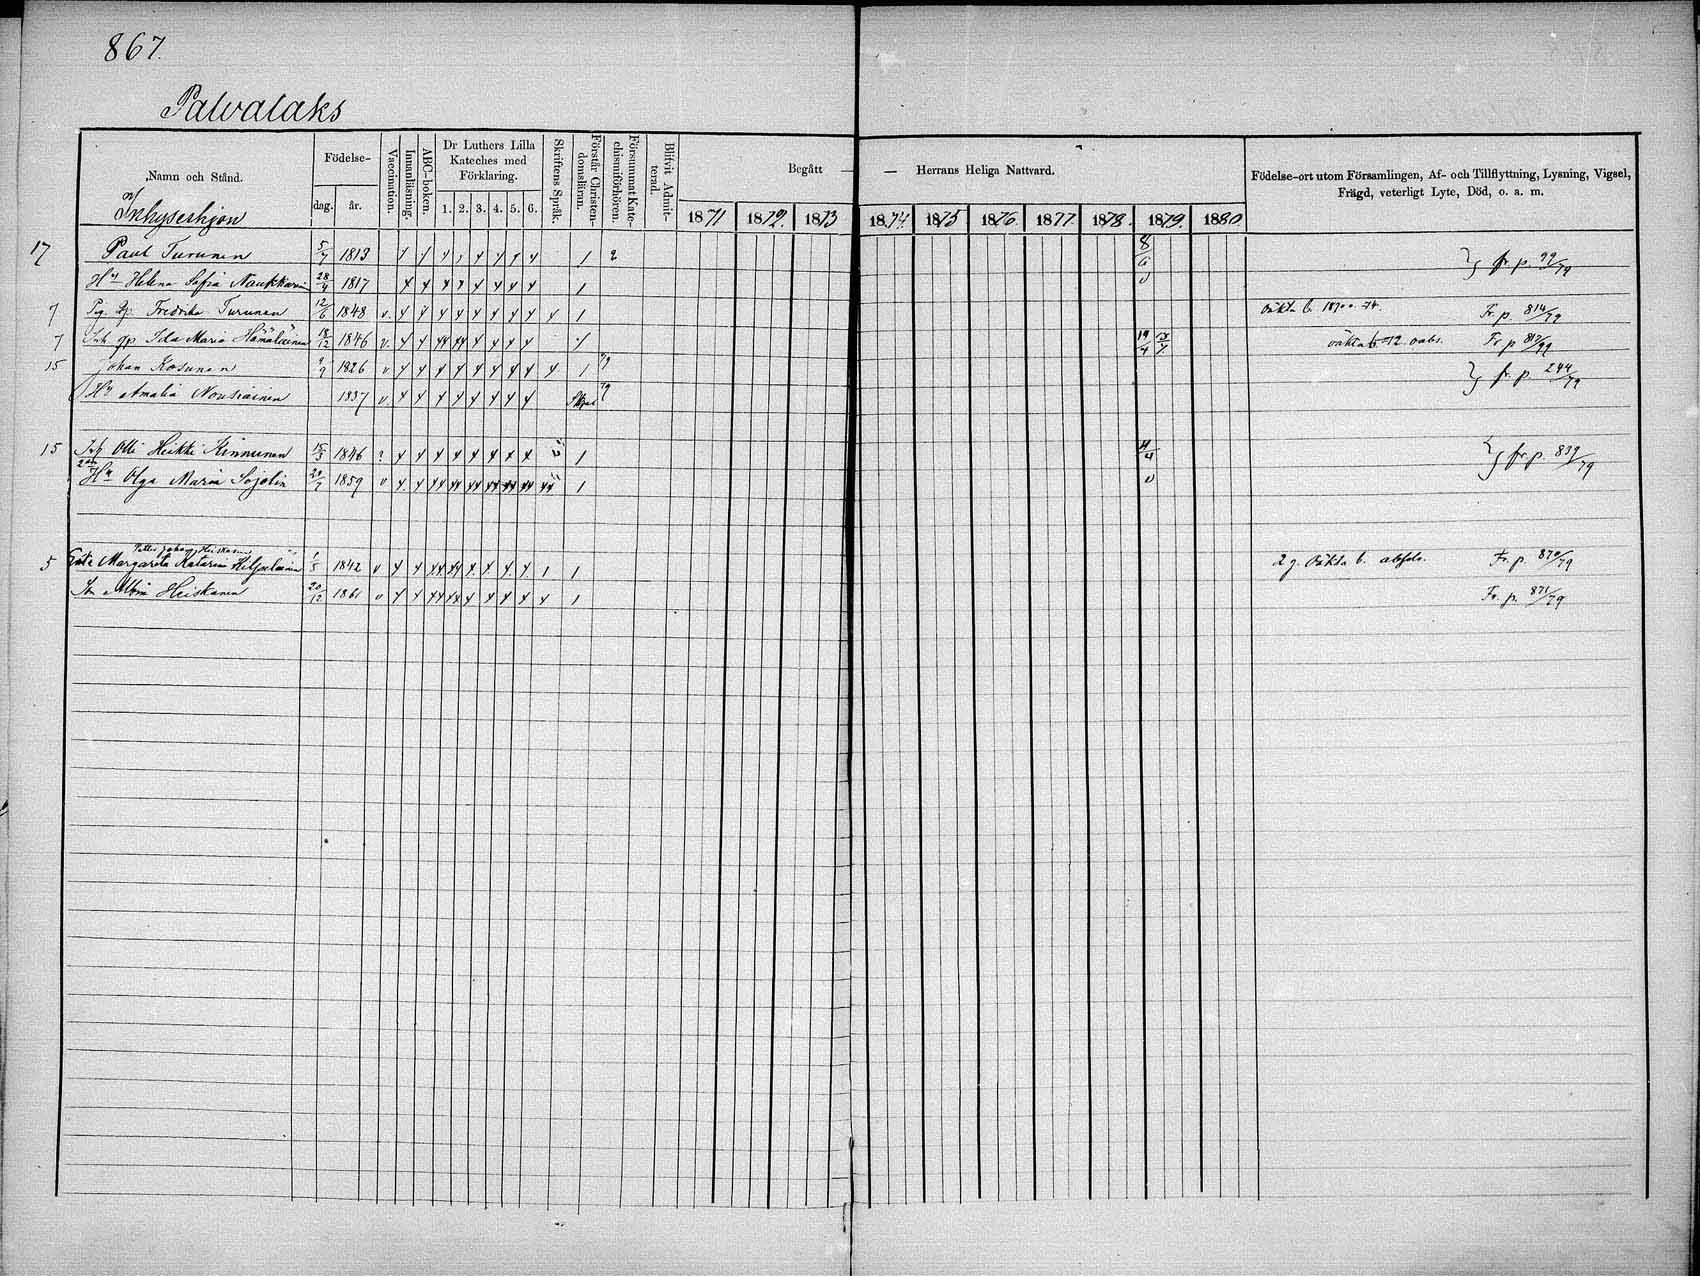 867.
Palvalaks
Namn och Stånd.
Födelse-
dag. år.
Vaccination.
Innanläsning.
ABC-boken.
Dr Luthers Lilla Kateches med Förklaring.
1. 2. 3. 4. 5. 6.
Skriftens Språk.
Förstår Christendomsläran.
Försummat Katechismiförhören.
Blifvit Admitterad.
Begått — — Herrans Heliga Nattvard.
1871 1872. 1873 1874. 1875 1876. 1877 1878. 1879. 1880.
Födelse-ort utom Församlingen, Af- och Tillflyttning, Lysning, Vigsel,
Frägd, veterligt Lyte, Död, o. a. m.
Inhyseshjon
17 Paul Turunen 5/7 1813 1 2 8/6 fr. p. 99/79
Hu Helena Sofia Naukkarin 28/4 1817 1 v
7 Pig. Qp. Fredrika Turunen 12/6 1848 v. 1 oäkta b. 1870 o. 74. Fr. p. 814/79
7 Inh. qp Ida Maria Hämäläinen 18/12 1846 v. 19/4 oäkta b 72. oabs. Fr. p 817/79
15 Johan Kosunen 9/9 1826 v 1 79 fr. p. 244/79
Hu Amalia Nousiainen 1837 v. 79
15 Inh Olli Heikki Kinnunen 15/3 1846 ? 1 4/4 fr. p. 839/79
Hu Olga Maria Sojolin 20/7 1859 v 1 v
Petter Johan Heiskanen
5 Enka Margareta Katarina Hiljalainen 1/5 1842 v 1 1 2 g. oäkta b. absolv. Fr. p. 870/79
Sn Albin Heiskanen 20/12 1861 v 1 Fr. p. 871/79